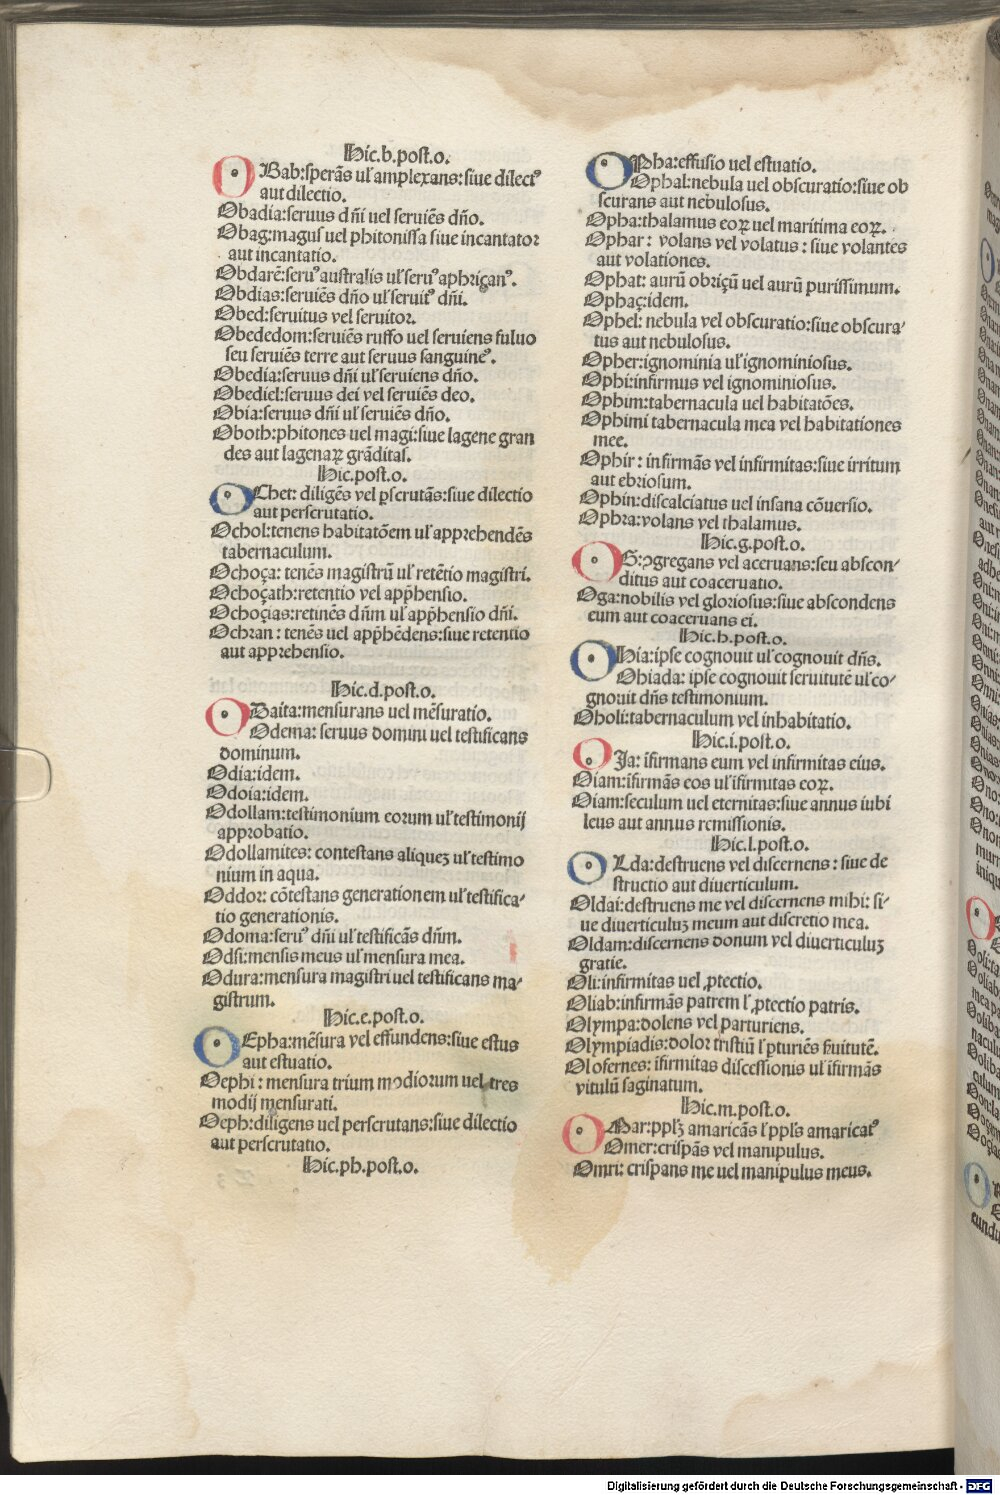 Hic.b.post.o.
OBab:sperãs ul' amplexans:siue dilect⁹
aut dilectio.
Obadia:seruus dñi uel seruiẽs dño.
Obag:magus uel phitonissa siue incantator
aut incantatio.
Obdarẽ:seru⁹ australis ul' seru⁹ aphrican⁹.
Obdias:seruiẽs dño ul' seruit⁹ dñi.
Obed:seruitus vel seruitor.
Obededom:seruiẽs ruffo uel seruiens fuluo
seu seruiẽs terre aut seruus sanguine⁹.
Obedia:seruus dñi ul' seruiens dño.
Obediel:seruus dei vel seruiẽs deo.
Obia:seruus dñi ul' seruiẽs dño.
Oboth:phitones uel magi:siue lagene gran
des aut lagenaꝝ grãditas.
Hic.post.o.
OChet: diligẽs vel ꝑscrutãs:siue dilectio
aut perscrutatio.
Ochol:tenens habitatõem ul' apprehendẽs
tabernaculum.
Ochoça: tenẽs magistrũ ul' retẽtio magistri.
Ochoçath:retentio vel app̃hensio.
Ochoçias:retinẽs dñm ul' app̃hensio dñi.
Ochran: tenẽs uel app̃hẽdens:siue retentio
aut apprehensio.
Hic.d.post.o.
ODaita:mensurans uel mẽsuratio.
Odema: seruus domini uel testificans
dominum.
Odia:idem.
Odoia:idem.
Odollam:testimonium eorum ul' testimonij
approbatio.
Odollamites: contestans aliqueʒ ul' testimo
nium in aqua.
Oddor: cõtestans generationem ul' testifica-
tio generationis.
Odoma:seru⁹ dñi ul' testificãs dñm.
Odsi:mensis meus ul' mensura mea.
Odura:mensura magistri uel testificans ma-
gistrum.
Hic.e.post.o.
OEpha:mẽsura vel effundens:siue estus
aut estuatio.
Oephi: mensura trium modiorum uel tres
modij mensurati.
Oeph:diligens uel perscrutans:siue dilectio
aut perscrutatio.
Hic.ph.post.o.
OPha:effusio uel estuatio.
Ophal:nebula uel obscuratio:siue ob
scurans aut nebulosus.
Opha:thalamus eoꝝ uel maritima eoꝝ.
Ophar: volans vel volatus: siue volantes
aut volationes.
Ophat: aurũ obriçũ uel aurũ purissimum.
Ophaç:idem.
Ophel: nebula vel obscuratio:siue obscura-
tus aut nebulosus.
Opher:ignominia ul' ignominiosus.
Ophi:infirmus vel ignominiosus.
Ophim:tabernacula uel habitatões.
Ophimi tabernacula mea vel habitationes
mee.
Ophir: infirmãs vel infirmitas:siue irritum
aut ebriosum.
Ophin:discalciatus uel insana cõuersio.
Ophra:volans vel thalamus.
Hic.g.post.o.
OG:ↄgregans vel aceruans:seu abscon-
ditus aut coaceruatio.
Oga:nobilis vel gloriosus:siue abscondens
eum aut coaceruans ei.
Hic.h.post.o.
OHia:ipse cognouit ul' cognouit dñs.
Ohiada: ipse cognouit seruitutẽ ul' co-
gnouit dñs testimonium.
Oholi:tabernaculum vel inhabitatio.
Hic.i.post.o.
OJa: ĩfirmans eum vel infirmitas eius.
Oiam:ĩfirmãs eos ul' ĩfirmitas eoꝝ.
Oiam:seculum uel eternitas:siue annus iubi
leus aut annus remissionis.
Hic.l.post.o.
OLda:destruens vel discernens: siue de
structio aut diuerticulum.
Oldai:destruens me vel discernens mihi: si-
ue diuerticuluʒ meum aut discretio mea.
Oldam:discernens donum vel diuerticuluʒ
gratie.
Oli:infirmitas uel ꝓtectio.
Oliab:infirmãs patrem l' ꝓtectio patris.
Olympa:dolens vel parturiens.
Olympiadis:dolor tristiũ l' pturiẽs ẜuitutẽ.
Olofernes: ĩfirmitas discessionis ul' ĩfirmãs
vitulũ saginatum.
Hic.m.post.o.
OMar:pplʒ amaricãs l' ppl's amaricat⁹
Omer:crispãs vel manipulus.
Omri: crispans me uel manipulus meus.
Digitalisierung gefördert durch die Deutsche Forschungsgemeinschaft - DFG